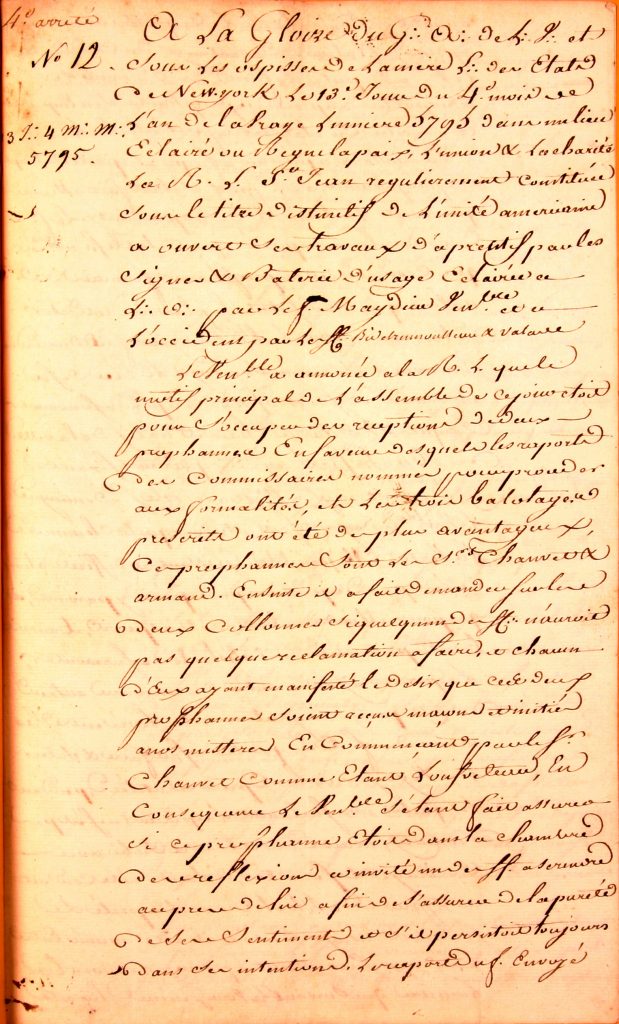 4e arreté
No 12.
3 J∴ 4 m∴ m∴
5795.
A La Gloire du G∴ A∴ de L∴ J∴ et
Sous Les ospisses de La mere L∴ des Etats
de New-york Le 13e Jour du 4e mois de
L'an de la Lumiere 5795 dans un lieu
Eclairé ou Regne la paix, L'union & La charité
La R. L. St Jean regulierement Constituée
Sous le titre distinctif de L'unité americaine
a ouvert Ses travaux d'aprentif par les
Signes & Baterie d'usage Eclairée a
L∴ O∴ par Le f. Maydieu Venble et a
L'occident par Les ff∴ & Valade
Le Venble a annoncé a la R. L. que le
motif principal de L'assemblé de ce jour etoit
pour S'occuper des receptions de deux
prophannes En faveur desquels les raports
des Commissaires nommés pour proceder
aux formalités, et Les trois balotages
prescrits ont été des plus avantageux,
Ces prophannes Sont Les Srs Chauvet &
armand. Ensuite il a fait demander Sur les
deux Collonnes si quelqu'un des ff∴ n'auroit
pas quelque reclamation a faire, et chacun
d'Eux ayant manifesté le desir que ces deux
prophannes soient reçus maçons & initiés
a nos misteres En Commençant par le Sr
Chauvet Comme Etant Loufveteau, En
Consequence Le Venble S'étant fait assurer
Si ce prophanne Etoit dans la chambre
de reflexions a invité un des ff. a se rendre
aupres de lui afin de S'assurer de la pureté
de Ses Sentiments et S'il persistoit toujours
dans Ses intentions. Le raport du f. Envoyé